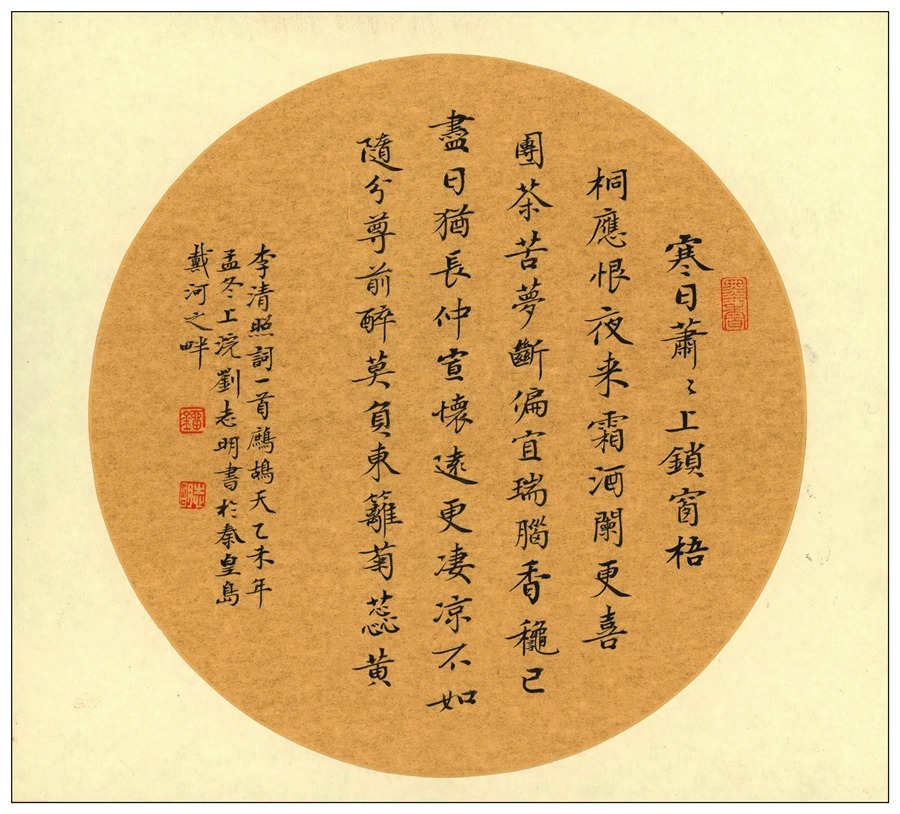 寒日蕭〻上鎖窗梧
桐應恨夜来霜酒闌更喜
團茶苦夢斷偏宜瑞腦香龝已
盡日猶長仲宣懷遠更凄凉不如
隨分尊前醉莫負東籬菊蕊黄
李清照詞一首鷓鴣天乙未年
孟冬上浣劉志明書於秦皇島
戴河之畔